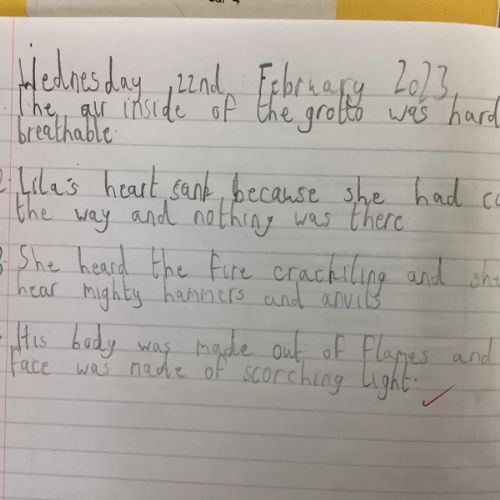 Wednesday 22nd February 2023
The air inside of the grotto was hard
breathable.
2. Lila's heart sank, because she had
the way and nothing was there.
3. She heard the fire crackiling and
hear mighty hammers and anvils
His body was made out of flames and
face was made of scorching light.